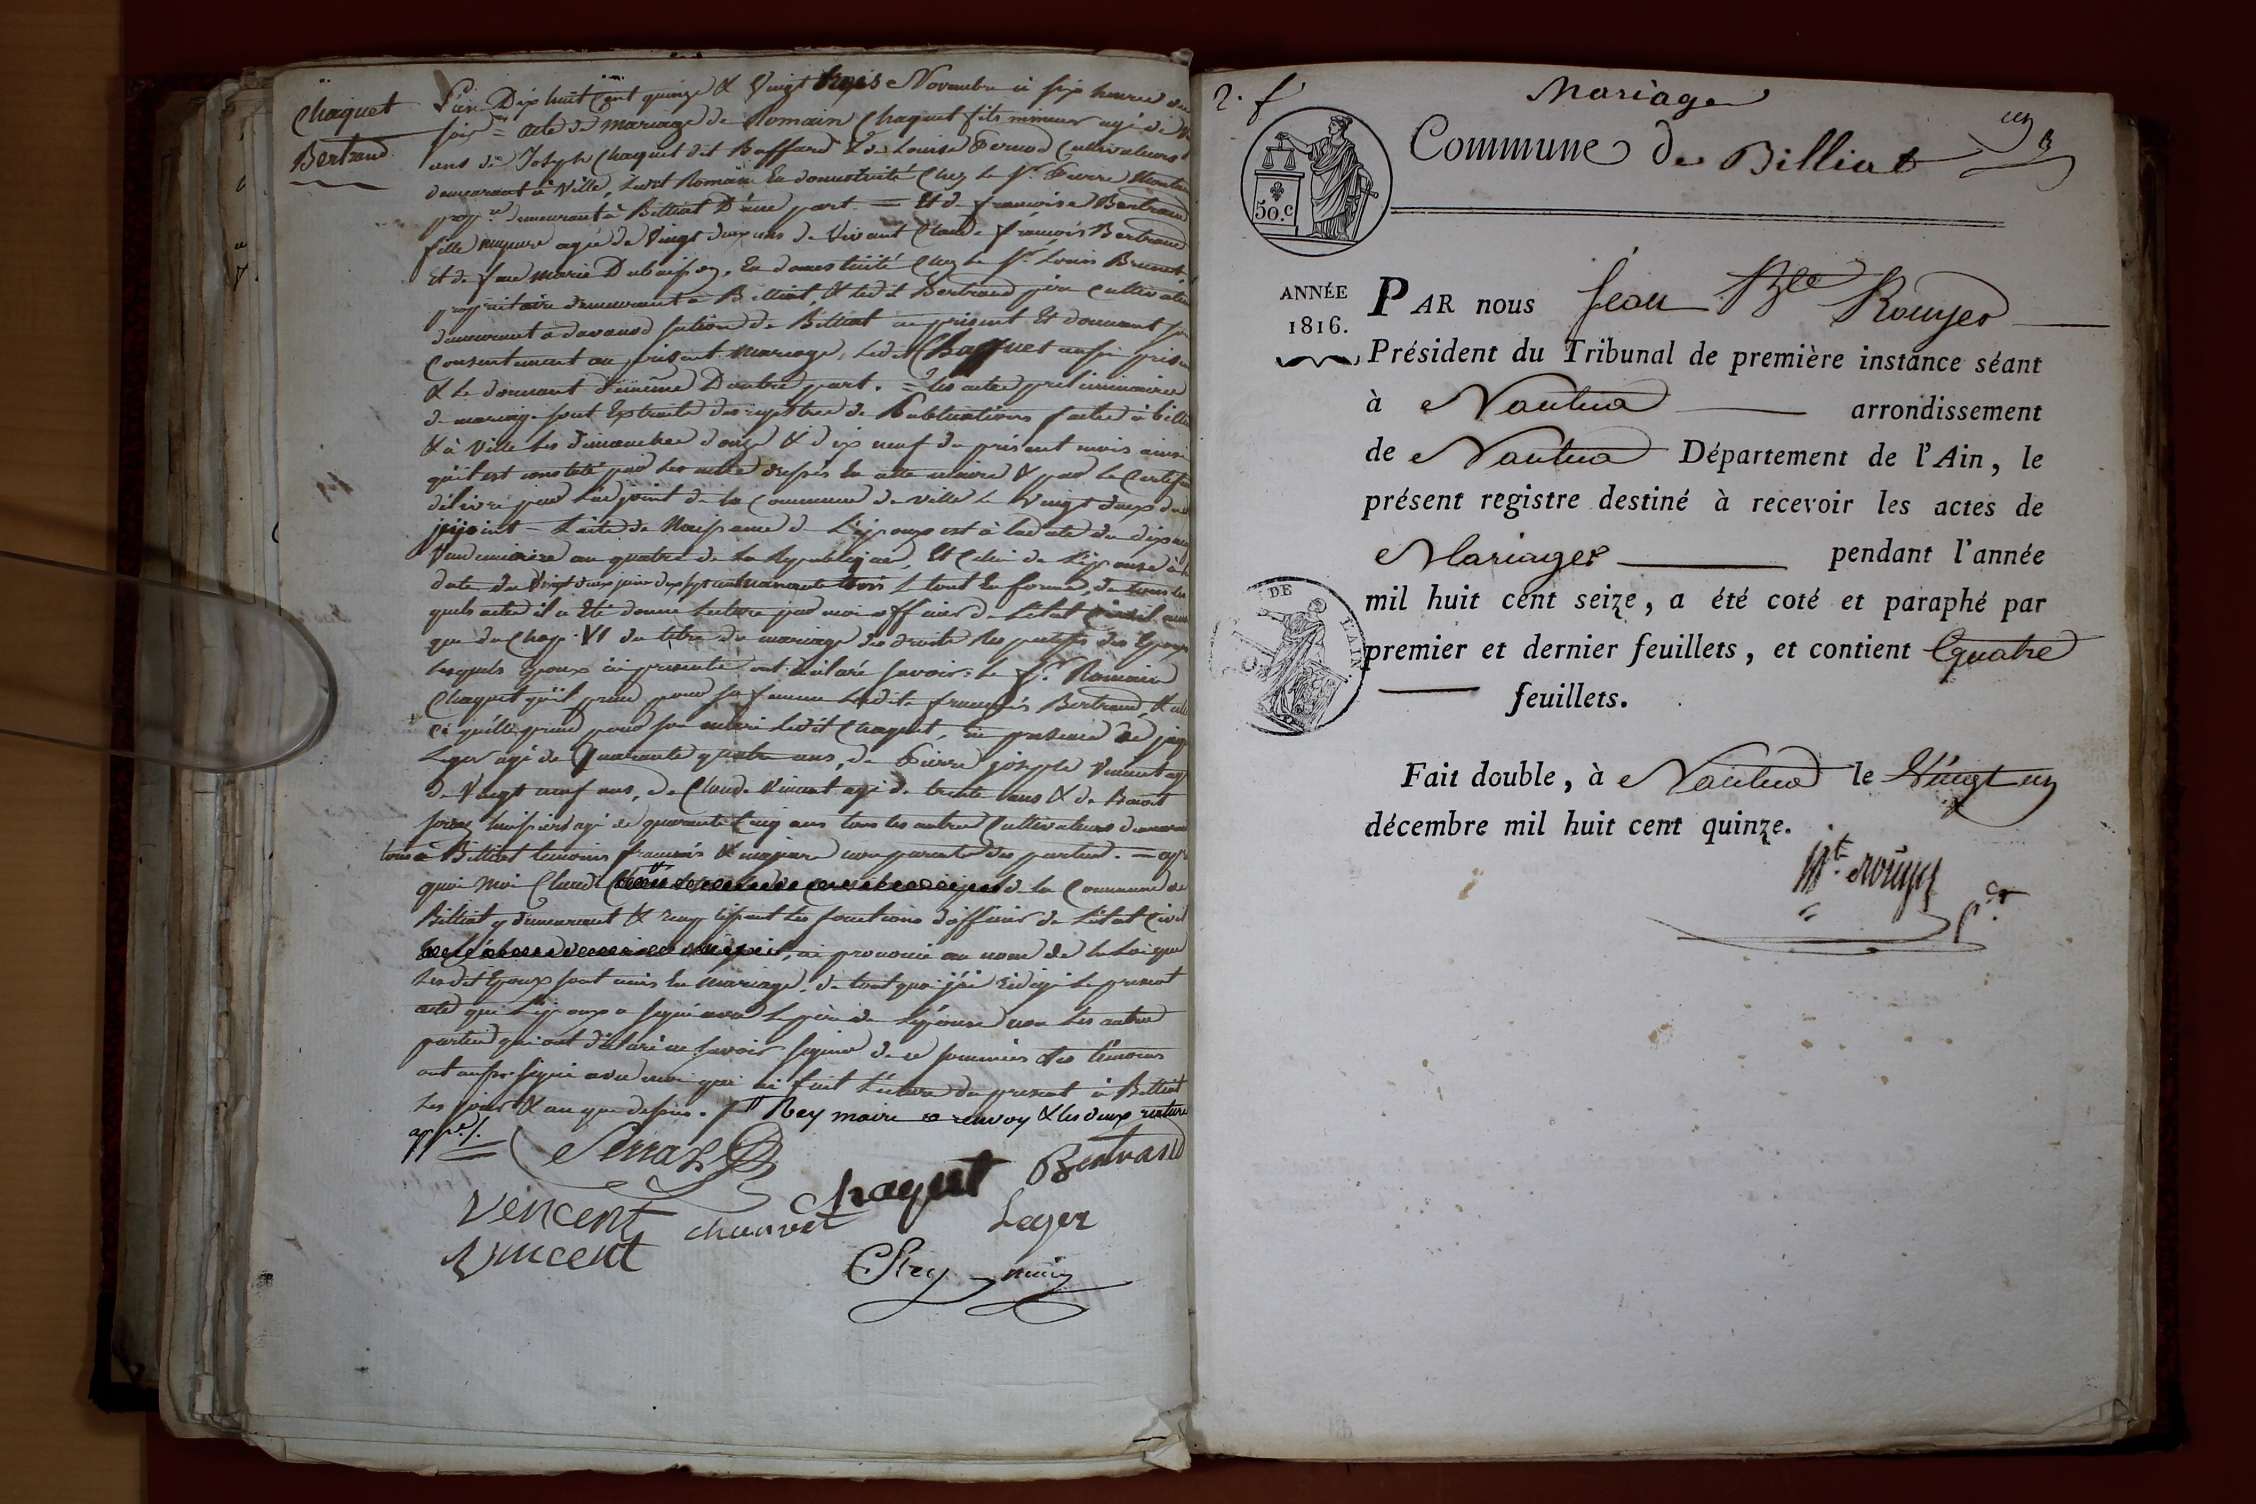 Chaquet
Bertrand
L'an Dix huit Cent quinze & Vingt trois Novembre à six heures du
soir = acte de mariage de Romain Chaquet fils mineur agé de
ans de Joseph Chaquet dit Boffard & de Louise Cultivateurs
demeurant à Ville, Ledit Romain En domesticité Chez le Sr Pierre
propre demeurant à Billiat D'une part. = Et de françoise Bertrand
fille majeure agée de Vingt deux ans de Vivant Claude françois Bertrand
Et de feue Marie Dubuisson, En domesticité Chez le Sr Louis Brunet
propriétaire demeurant à Billiat, & ledit Bertrand père Cultivateur
demeurant à de Billiat ici présent Et donnant son
Consentement au présent mariage, Ledit Chaquet aussi présent
& Le donnant de même D'autre part. = les actes préliminaires
de mariage sont Extraits des registres de Publications faites à Billiat
& à Ville les dimanches douze & dix neuf du présent mois ainsi
qu'il est constaté par les actes dressés En cette mairie & par le Certificat
délivré par L'adjoint de la Commune de Ville le Vingt deux du
L'acte de Naissance de L'époux est à la date du dix
Vendemiaire an quatre de la République, Et Celui de L'épouse à la
date du Vingt deux juin dix sept cent tout En forme, de tous les
quels actes il a Eté donné Lecture par moi officier de L'état Civil ainsi
que du Chap. VI du titre du mariage des droits Respectifs des Epoux
lesquels Epoux ici présents ont déclaré savoir: le Sr Romain
Chaquet qu'il prend pour sa femme Ladite françoise Bertrand, &
ci qu'elle prend pour son mari Ledit Chaquet, en présence de
Leger agé de Quarante quatre ans, de Pierre joseph Vincent agé
de Vingt neuf ans, de Claude Vincent agé de trente ans & de Benoit
agé de quarante Cinq ans tous les autres Cultivateurs demeurant
tous à Billiat témoins français & majeurs non parents des parties. = après
quoi Moi Claude de la Commune de
Billiat y demeurant & remplissant les fonctions d'officier de L'état Civil
ai prononcé au nom de la Loi que
Lesdit Epoux sont unis En mariage. de tout quoi j'ai Rédigé Le présent
acte que L'époux a signé avec le père de L'épouse non les autres
parties qui ont déclaré ne savoir signer de ce sommées les témoins
ont aussi signé avec moi qui ai fait Lecture du présent à Billiat
Les jour & an que dessus. Rey maire renvoy & les deux ratures
app.
Serraz
Chaquet Bertrand
Vencent chauvet Leger
Vincent
C Rey maire
2. f
Mariage
Commune de Billiat
un
R
50.c
ANNÉE
1816.
PAR nous Jean Bte Rouyer
Président du Tribunal de première instance séant
à Nantua arrondissement
de Nantua Département de l'Ain, le
présent registre destiné à recevoir les actes de
Mariages pendant l'année
DE L'AIN.
mil huit cent seize, a été coté et paraphé par
premier et dernier feuillets, et contient Quatre
feuillets.
Fait double, à Nantua le Vingt un
décembre mil huit cent quinze.
Bte Rouyer